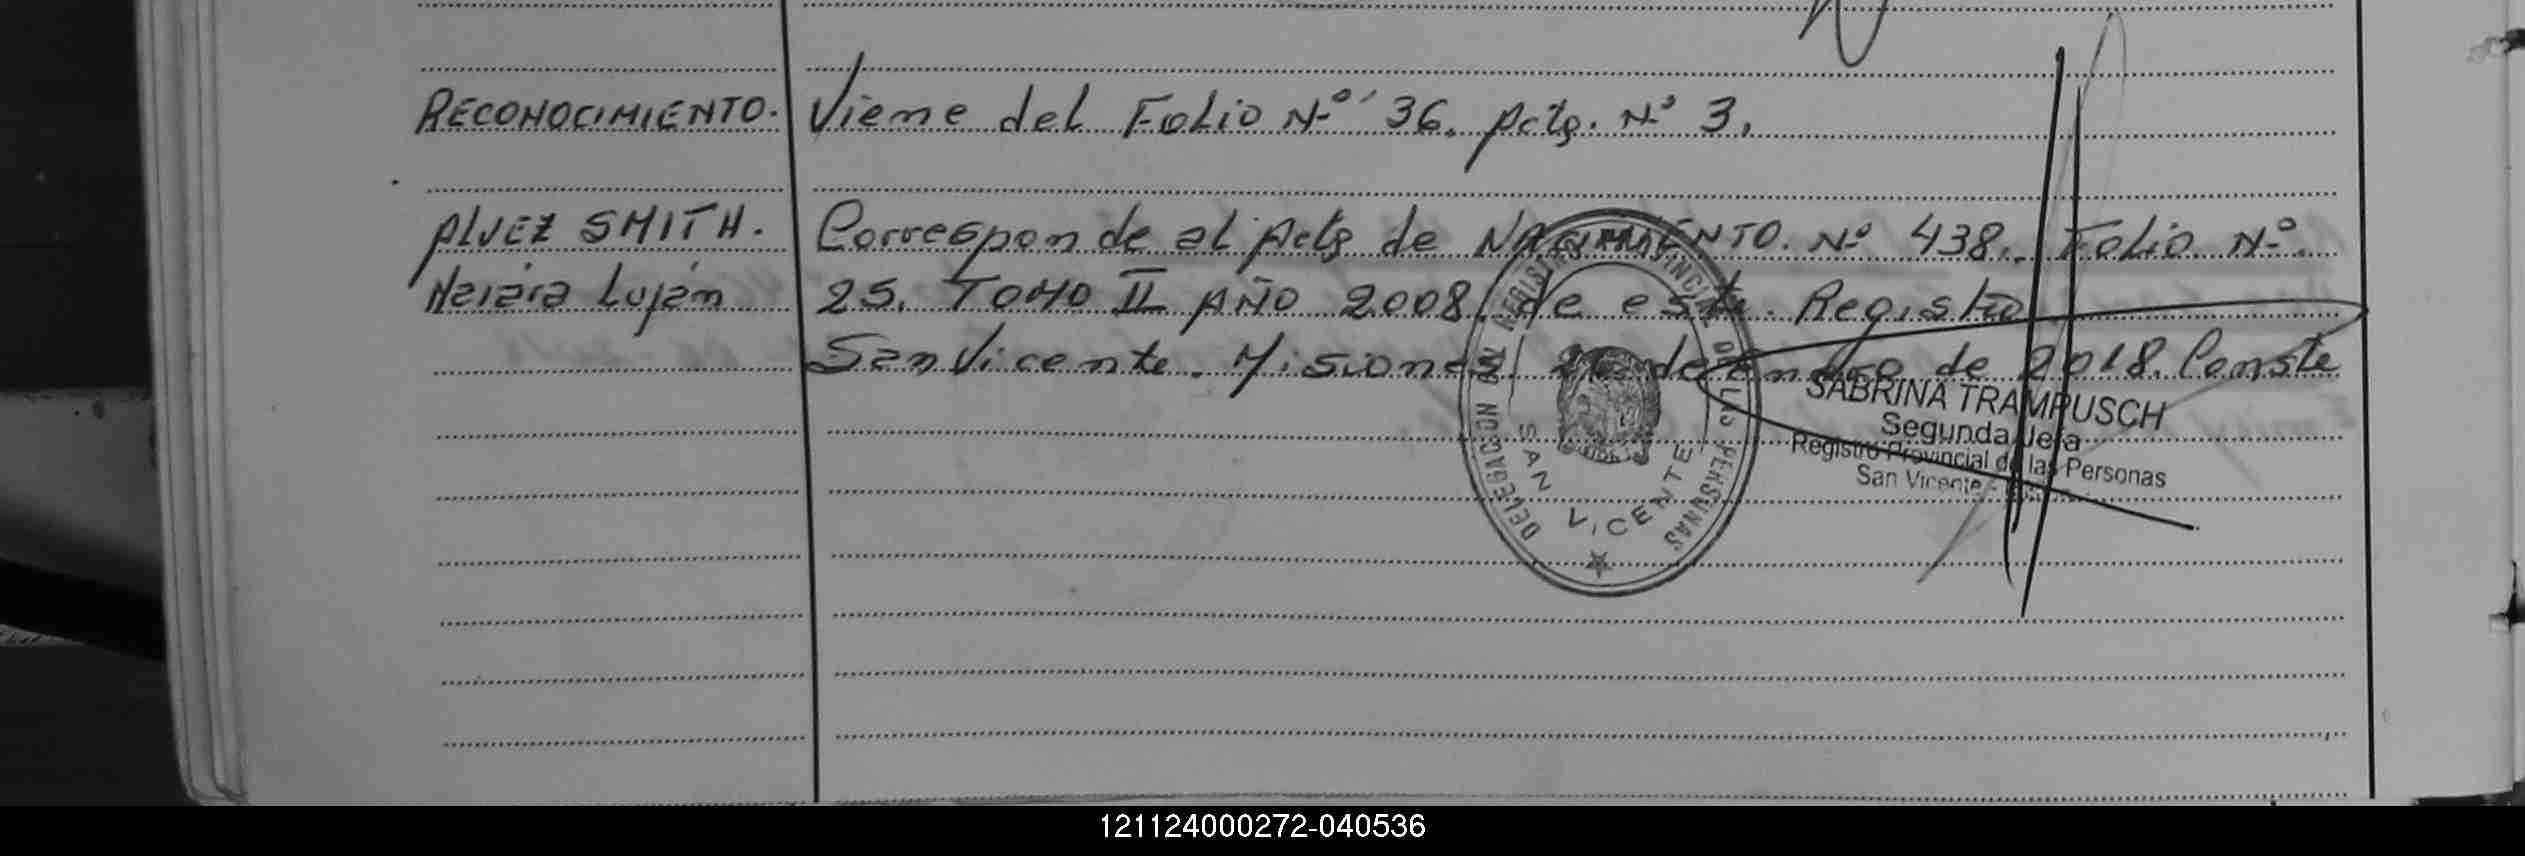 RECONOCIMIENTO. Viene del Folio Nº 36. Acta. Nº 3.
ALVEZ SMITH. Corresponde al Acta de NACIMIENTO. Nº 438. Folio Nº.
Naiara Luján 25. TOMO II AÑO 2008. de este. Registro
San Vicente. Misiones de Enero de 2018. Conste
DELEGACION DEL REGISTRO PROVINCIAL DE LAS PERSONAS
SAN VICENTE
SABRINA TRAMPUSCH
Segunda Jefa
Registro Provincial de las Personas
San Vicente
121124000272-040536